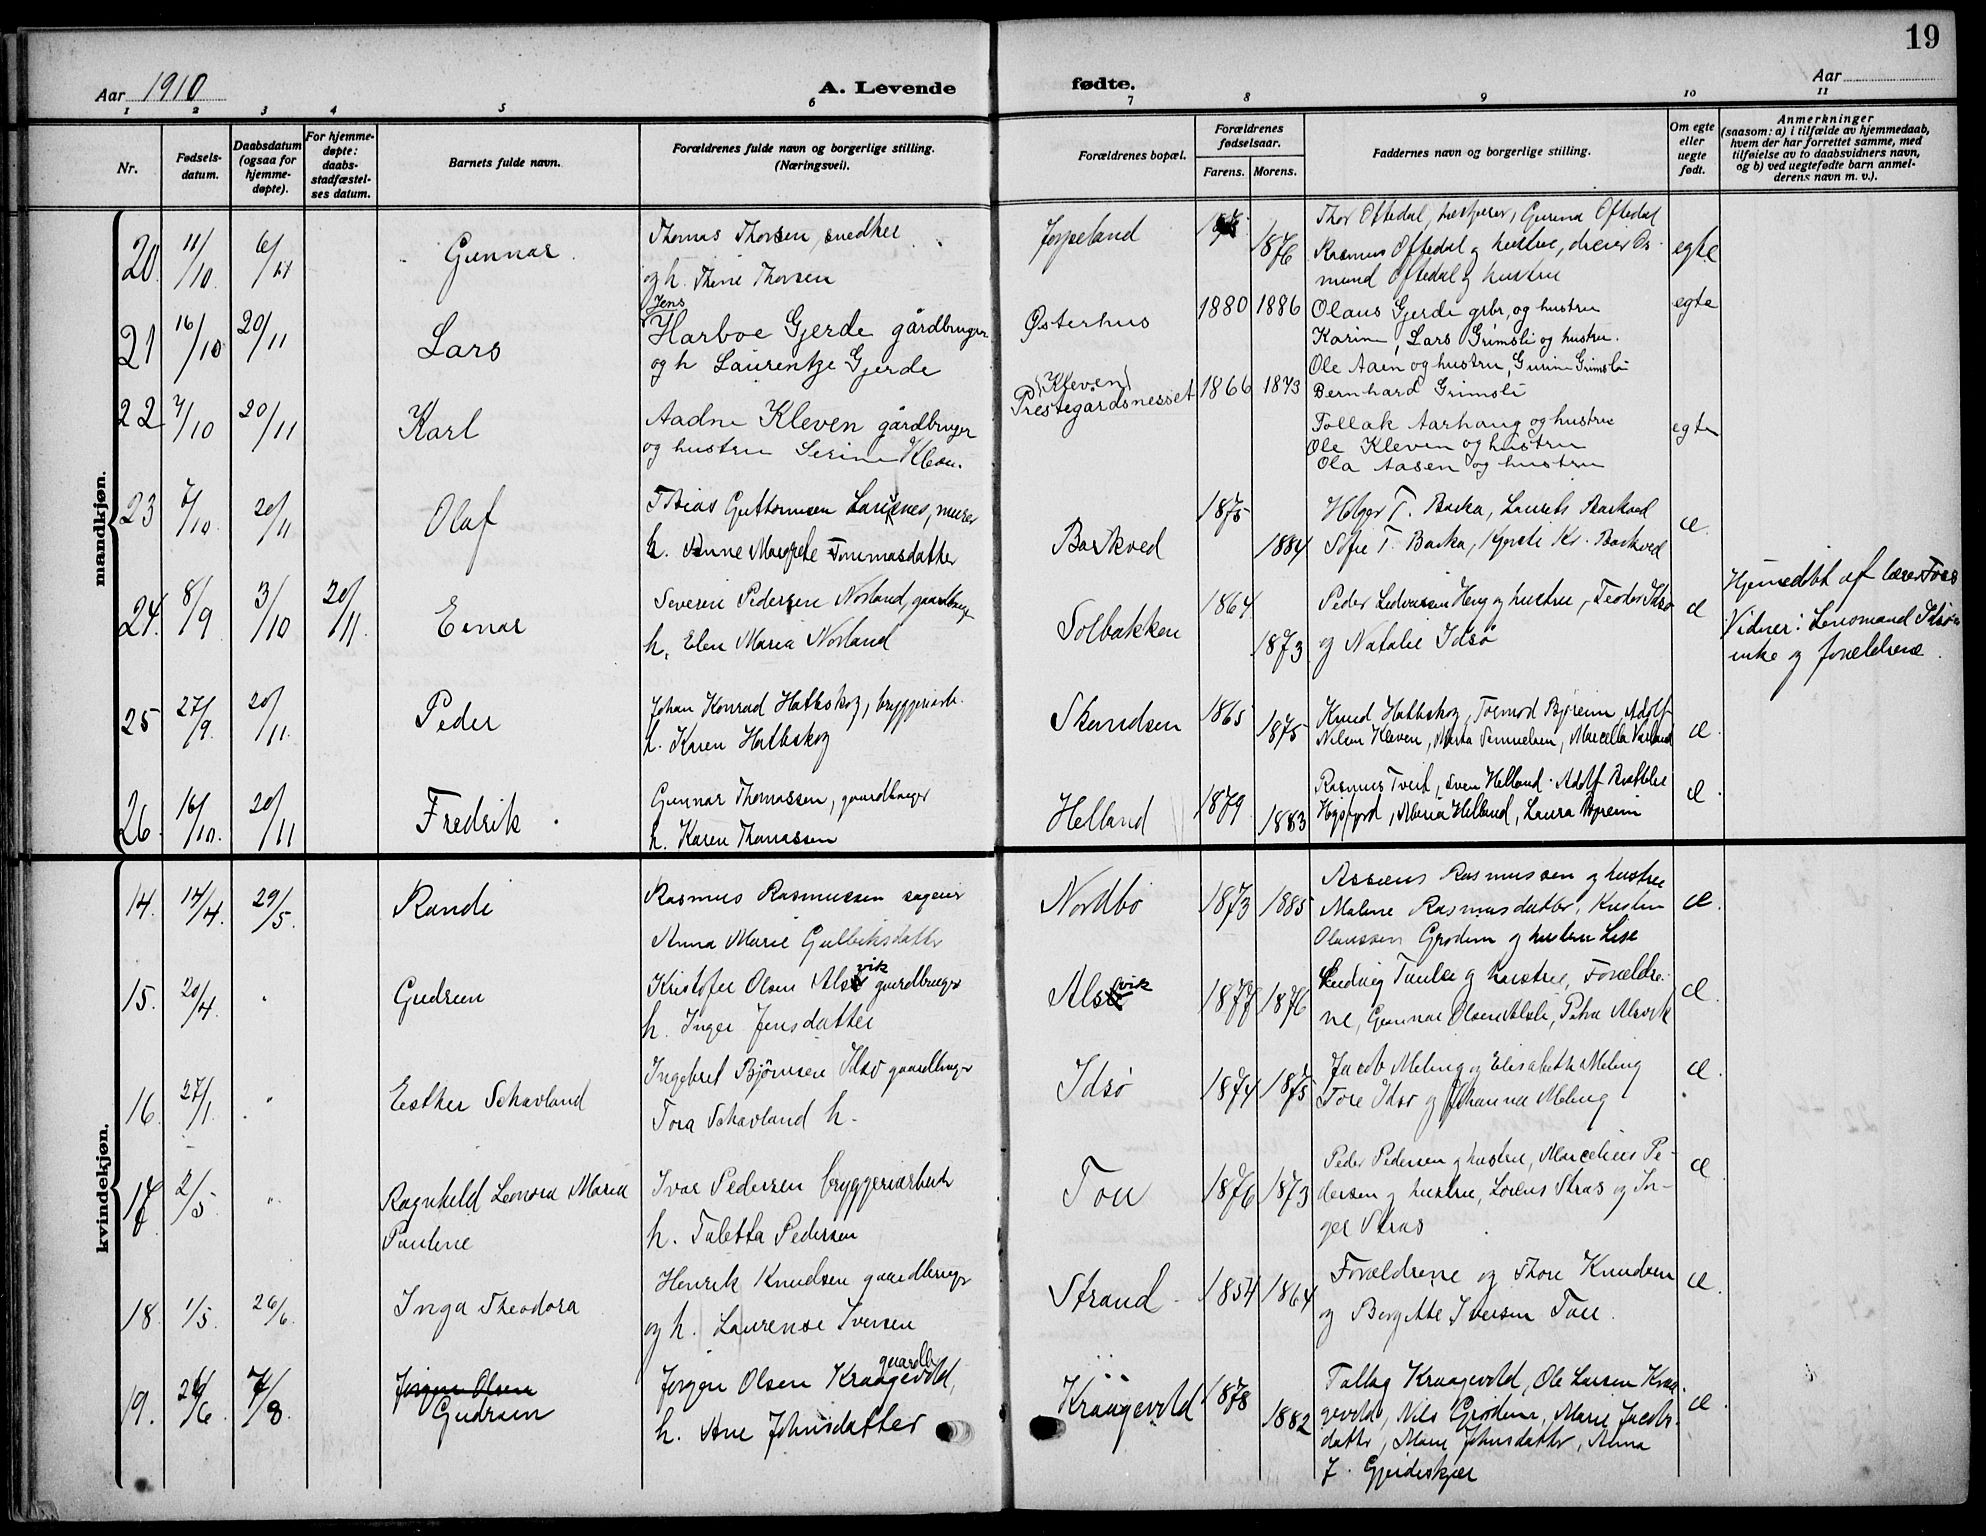 19
Aar 1910
A. Levende fødte.
Aar
1 2 3 4 5 6 7 8 9 10 11
Nr.
Fødsels-
datum.
Daabsdatum
(ogsaa for
hjemme-
døpte).
For hjemme-
døpte:
daabs-
stadfæstel-
ses datum.
Barnets fulde navn.
Forældrenes fulde navn og borgerlige stilling.
(Næringsvei).
Forældrenes bopæl.
Forældrenes
fødselsaar.
Farens. Morens.
Faddernes navn og borgerlige stilling.
Om egte
eller
uegte
født.
Anmerkninger
(saasom: a) i tilfælde av hjemmedaab,
hvem der har forrettet samme, med
tilføielse av to daabsvidners navn,
og b) ved uegtefødte barn anmel-
derens navn m. v.).
mandkjøn.
20 11/10 6/11 Gunnar
Thomas Thorsen, snedker
og h. Thine Thorsen
Jørpeland 1876
Thor Oftedal, Gurina Oftedal
Rasmus Oftedal og hustru, dreier Os-
mund Oftedal og hustru
egte
21 16/10 20/11 Lars
Jens
Harboe Gjerde gårdbruger
og h Laurentze Gjerde
Østerhus 1880 1886
Olaus Gjerde grbr, og hustru
Karine, Lars Grimsli og hustru.
Ole Aaen og hustru, Gurine Grimsli
Bernhard Grimsli
egte
22 7/10 20/11 Karl
Aadne Kleven gårdbruger
og hustru Serine Kleven.
(Kleven)
Prestegårdsnesset 1866 1873
Tollak Aarhaug og hustru
Ole Kleven og hustru
Ola Aasen og hustru
egte
23 7/10 20/11 Olaf
Tobias Guttormsen murer
h. Anne Margrete Tommasdatter
Barkved 1875 1884
Helger T. Barka, Laurits Barkved
Sofie T. Barka, Kr. Barkved
æ
24. 8/9 3/10 20/11. Einar
Severin Pedersen Norland, gaardbrug
h. Elen Maria Norland
Solbakken 1864 1873
Peder og hustru, Teodor Idsø
og Natalie Idsø
æ
Hjemedøbt af lærer Foss
Vidner: Lensmand Idsøs
enke og forældrene
25 27/9 20/11 Peder
Johan Konrad Hatleskog, bryggeriarb.
h. Karen Hatleskog
1865 1875
Knud Hatleskog, Tormod Bjørheim, Adolf
Nilsen Kleven, Marta Samuelsen, Marcella
æ
26. 16/10. 20/11 Fredrik.
Gunnar Thomassen, gaardbruger
h. Karen Thomassen
Helland 1879 1883
Rasmus Tveit, Sven Helland. Adolf
Høgsfjord, Maria Helland, Laura Bjøreim
æ
kvindekjøn.
14. 14/4. 29/5. Randi
Rasmus Rasmussen sageier
Anna Marie Gulleiksdatter
Nordbø 1873 1885
Rasmussen og hustru
Malene Rasmusdatter, Kristen
Olaussen Grødem og hustru Lise
æ.
15. 20/4. " Gudrun
Kristofer Olsen Alsvik gaardbruger
h. Inger Jensdatter
Alsvik 1877 1876
Ludvig og hustru, Forældre-
ne, Gunnar Olsen Alsli, Petra Alsvik
æ.
16. 27/1. " Esther Schavland
Ingebret Bjørnsen Idsø gaardbruger
Tora Schavland h.
Idsø 1874 1875
Jacob Meling og Elisabeth Meling
Tore Idsø og Johanna Meling
æ.
17 2/5 " Ragnhild Leonora Maria
Pauline
Ivar Pedersen bryggeriarbeider
h. Taletta Pedersen
Tou 1876 1873
Peder Pedersen og hustru, Marcelius Pe-
dersen og hustru, Lorens Stras og In-
ger Stras
æ
18. 1/5. 26/6. Inga Theodora
Henrik Knudsen gaardbruger
og h. Laurense Iversen
Strand 1854 1864
Forældrene og Thore Knudsen
og Bergitte Iversen Tou.
æ.
19. 26/6 7/8. Jørgen Olsen
Gudrun
gaardb.
Jørgen Olsen Kraagevold,
h. Ane Johnsdatter
Kraagevold 1878 1882
Tallag Kraagevold, Ole Larsen Kraa-
gevold, Nils Grødem, Marie Jacobs-
datter, Marie Johnsdatter, Anna
J. Gjerdeskjær
æ.